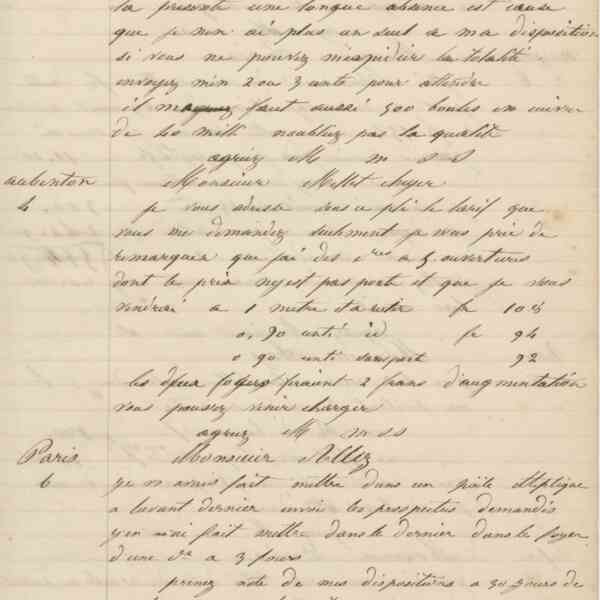 la presente une longue absence est cause
que je nen ai plus un seul a ma disposition
si vous ne pouvez m'expidier la totalité
envoyez m'en 2 ou 3 cents pour attendre
il me faut aussi 500 boules en cuivre
de 40 mill noubliez pas la qualité
agreez M m s s
aubenton Monsieur Millet
4 je vous adresse sous ce pli le tarif que
vous me demandez seulment je vous prie de
remarquer que j'ai des à 3 ouvertures
dont le prix n'y est pas porté et que je vous
vendrai a 1 metre fr 108
0,90 unti id fr 94
0 90 unti 92
les deux foyers feraient 2 frans d'augmentation
vous pouvez venir charger
agreez M m s s
Paris Monsieur Allez
6 je n avais fait mettre dans un poële eliptique
a lavant dernier envoi les prospectus demandés
j'en ai fait mettre dans le dernier dans le foyer
d'une a 3 fours
prenez note de mes dispositions a 30 jours de